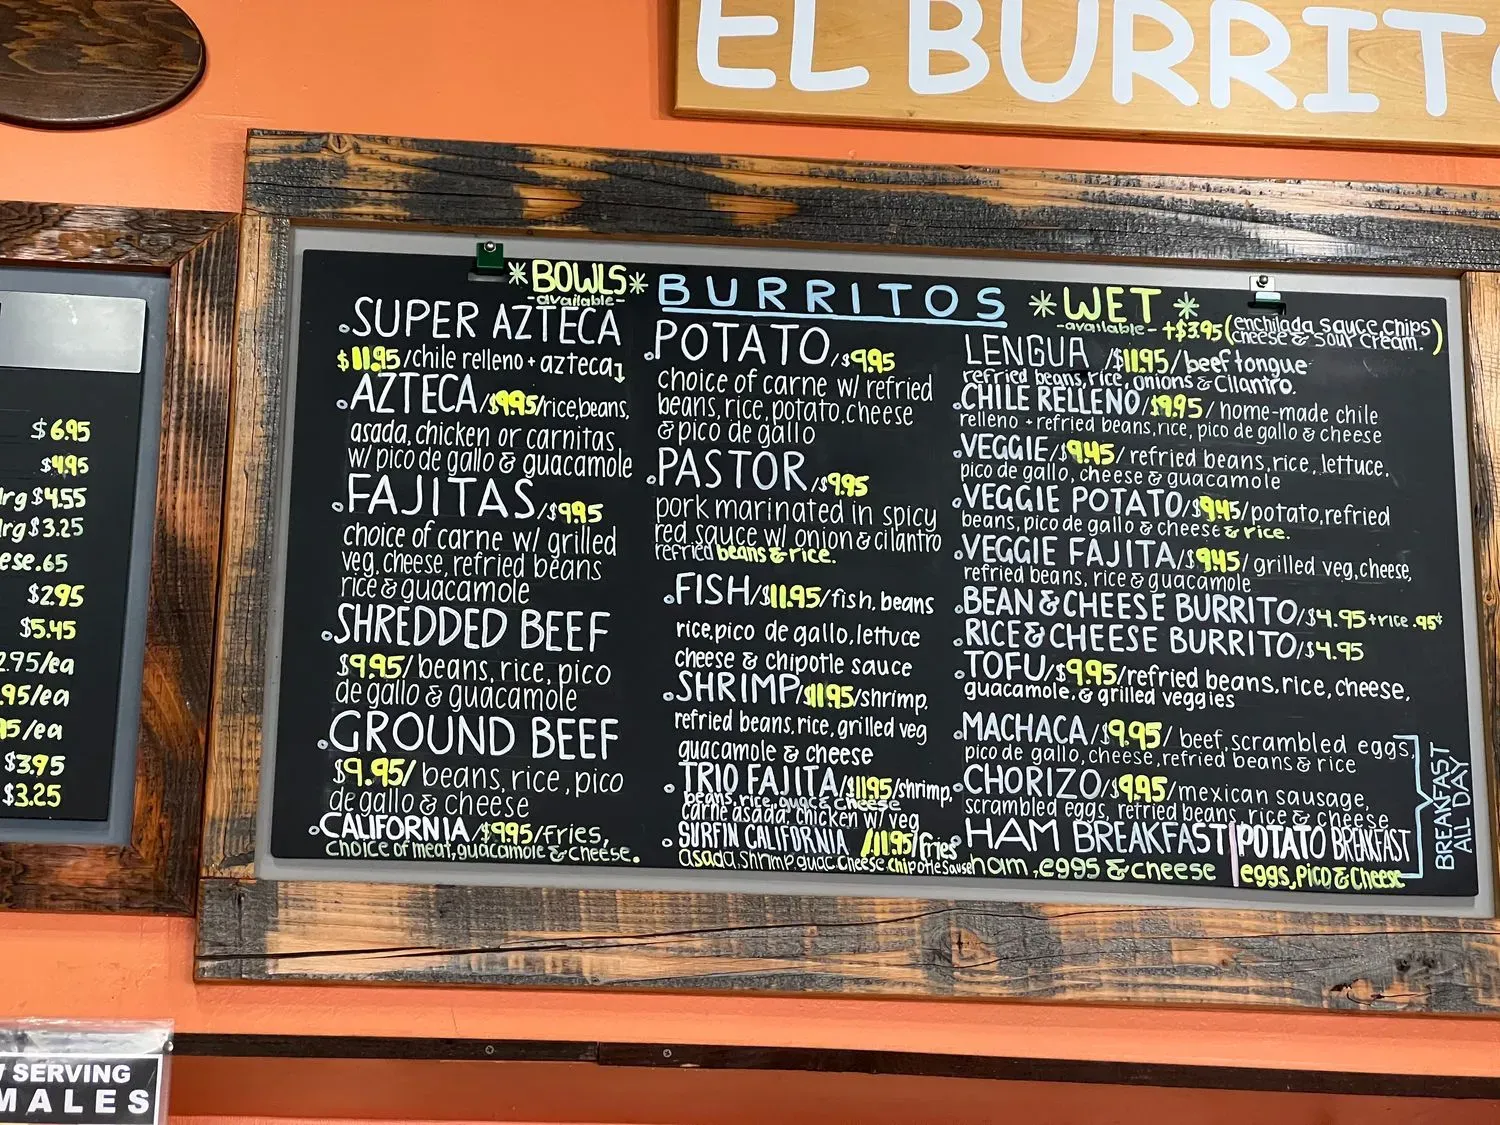 EL BURRITO
$6.95
$4.95
lrg $4.55
lrg $3.25
ese .65
$2.95
$5.45
2.95/ea
.95/ea
95/ea
$3.95
$3.25
SERVING
MALES
*BOWLS*
-available-
BURRITOS
*WET*
-available- +$3.95 (enchilada sauce, chips
cheese & sour cream.)
SUPER AZTECA
$11.95/chile relleno + azteca
AZTECA/$9.95/rice, beans,
asada, chicken or carnitas
w/ pico de gallo & guacamole
FAJITAS/$9.95
choice of carne w/ grilled
veg, cheese, refried beans
rice & guacamole
SHREDDED BEEF
$9.95/beans, rice, pico
de gallo & guacamole
GROUND BEEF
$9.95/beans, rice, pico
de gallo & cheese
CALIFORNIA/$9.95/fries,
choice of meat, guacamole & cheese.
POTATO/$9.95
choice of carne w/ refried
beans, rice, potato, cheese
& pico de gallo
PASTOR/$9.95
pork marinated in spicy
red sauce w/ onion & cilantro
refried beans & rice.
FISH/$11.95/fish, beans
rice, pico de gallo, lettuce
cheese & chipotle sauce
SHRIMP/$11.95/shrimp,
refried beans, rice, grilled veg
guacamole & cheese
TRIO FAJITA/$11.95/shrimp,
beans, rice, guac & cheese
carne asada, chicken w/ veg
SURFIN CALIFORNIA /11.95/fries
asada, shrimp, guac, cheese, chipotle sause
LENGUA /$11.95/beef tongue
refried beans, rice, onions & cilantro.
CHILE RELLENO/$9.95/home-made chile
relleno + refried beans, rice, pico de gallo & cheese
VEGGIE/$9.45/refried beans, rice, lettuce,
pico de gallo, cheese & guacamole
VEGGIE POTATO/$9.45/potato, refried
beans, pico de gallo & cheese & rice.
VEGGIE FAJITA/$9.45/grilled veg, cheese,
refried beans, rice & guacamole
BEAN & CHEESE BURRITO/$4.95 + rice .95¢
RICE & CHEESE BURRITO/$4.95
TOFU/$9.95/refried beans, rice, cheese,
guacamole, & grilled veggies
MACHACA/$9.95/beef, scrambled eggs,
pico de gallo, cheese, refried beans & rice
CHORIZO/$9.95/mexican sausage,
scrambled eggs, refried beans, rice & cheese
HAM BREAKFAST
ham, eggs & cheese
POTATO BREAKFAST
eggs, Pico & Cheese
BREAKFAST
ALL DAY